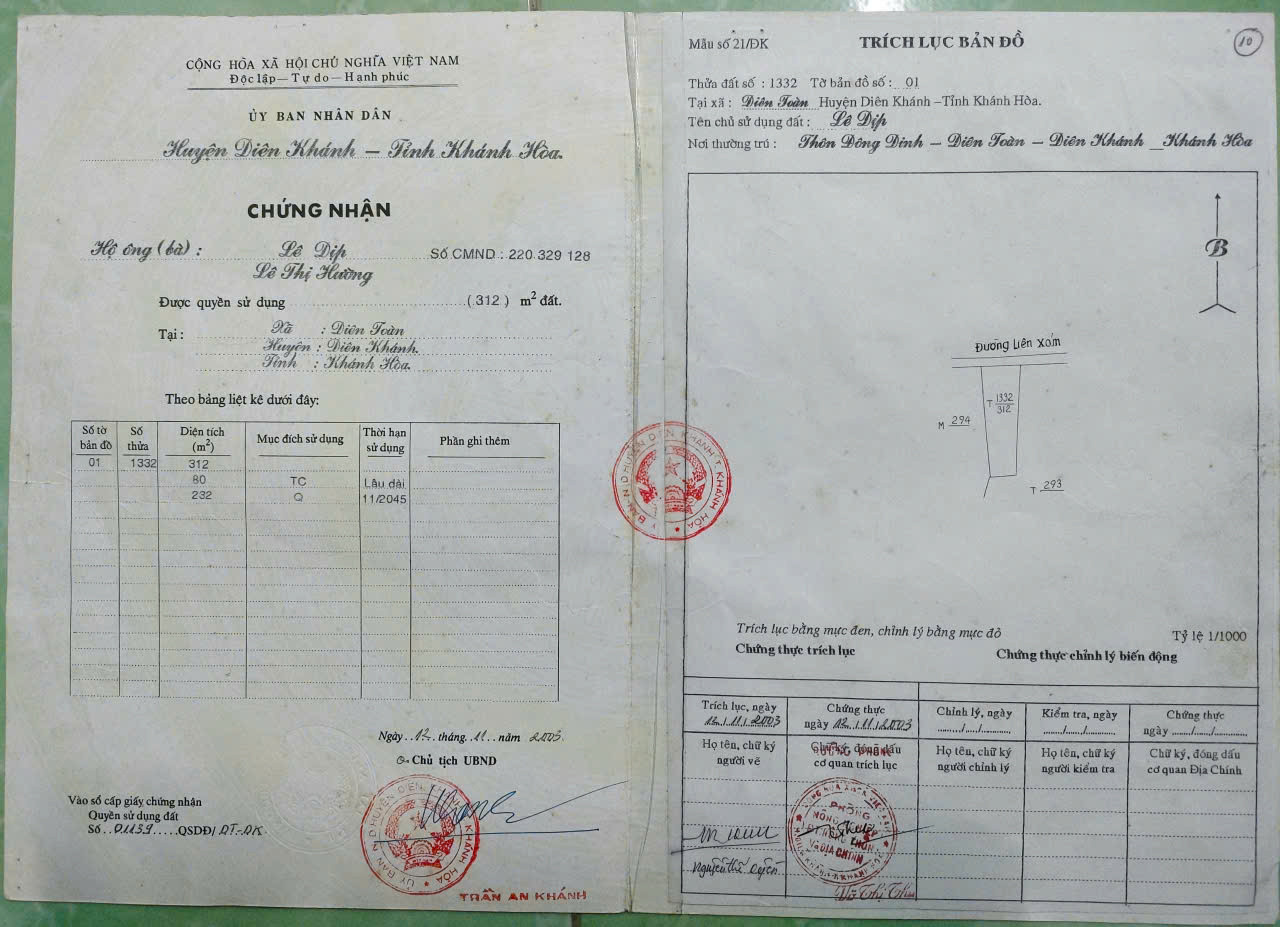 CỘNG HÒA XÃ HỘI CHỦ NGHĨA VIỆT NAM
Độc lập — Tự do — Hạnh phúc
ỦY BAN NHÂN DÂN
Huyện Diên Khánh — Tỉnh Khánh Hòa.
CHỨNG NHẬN
Hộ ông (bà) : Lê Dịp Số CMND : 220 329 128
Lê Thị Hường
Được quyền sử dụng (.312 ) m² đất.
Tại : Xã : Diên Toàn
Huyện : Diên Khánh.
Tỉnh : Khánh Hòa.
Theo bảng liệt kê dưới đây:
Số tờ bản đồ Số thửa Diện tích (m²) Mục đích sử dụng Thời hạn sử dụng Phần ghi thêm
01 1332 312
80 TC Lâu dài
232 Q 11/2045
Ngày..12.tháng.11..năm 2003.
Chủ tịch UBND
Vào sổ cấp giấy chứng nhận
Quyền sử dụng đất
Số..01139...QSDĐ/.DT-DK.
TRẦN AN KHÁNH
Mẫu số 21/ĐK TRÍCH LỤC BẢN ĐỒ 10
Thửa đất số : 1332 Tờ bản đồ số : 01
Tại xã : Diên Toàn Huyện Diên Khánh –Tỉnh Khánh Hòa.
Tên chủ sử dụng đất : Lê Dịp
Nơi thường trú : Thôn Đông Dinh — Diên Toàn — Diên Khánh Khánh Hòa
B
Đường Liên Xóm
T 1332
312
M 294
T 293
Trích lục bằng mực đen, chỉnh lý bằng mực đỏ Tỷ lệ 1/1000
Chứng thực trích lục Chứng thực chỉnh lý biến động
Trích lục, ngày Chứng thực Chỉnh lý, ngày Kiểm tra, ngày Chứng thực
12./11/.2003 ngày 12./11./2003 ....../...../.......... ...../...../.......... ngày ....../...../......
Họ tên, chữ ký Chữ ký, đóng dấu Họ tên, chữ ký Họ tên, chữ ký Chữ ký, đóng dấu
người vẽ cơ quan trích lục người chỉnh lý người kiểm tra cơ quan Địa Chính
TRƯỞNG PHÒNG
PHÒNG
VÀ ĐỊA CHÍNH